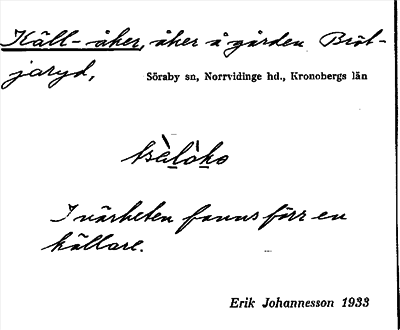 Käll-åker, åker å gården Bröt-
jaryd,
Söraby sn, Norrvidinge hd., Kronobergs län
I närheten fanns förr en
källare.
Erik Johannesson 1933